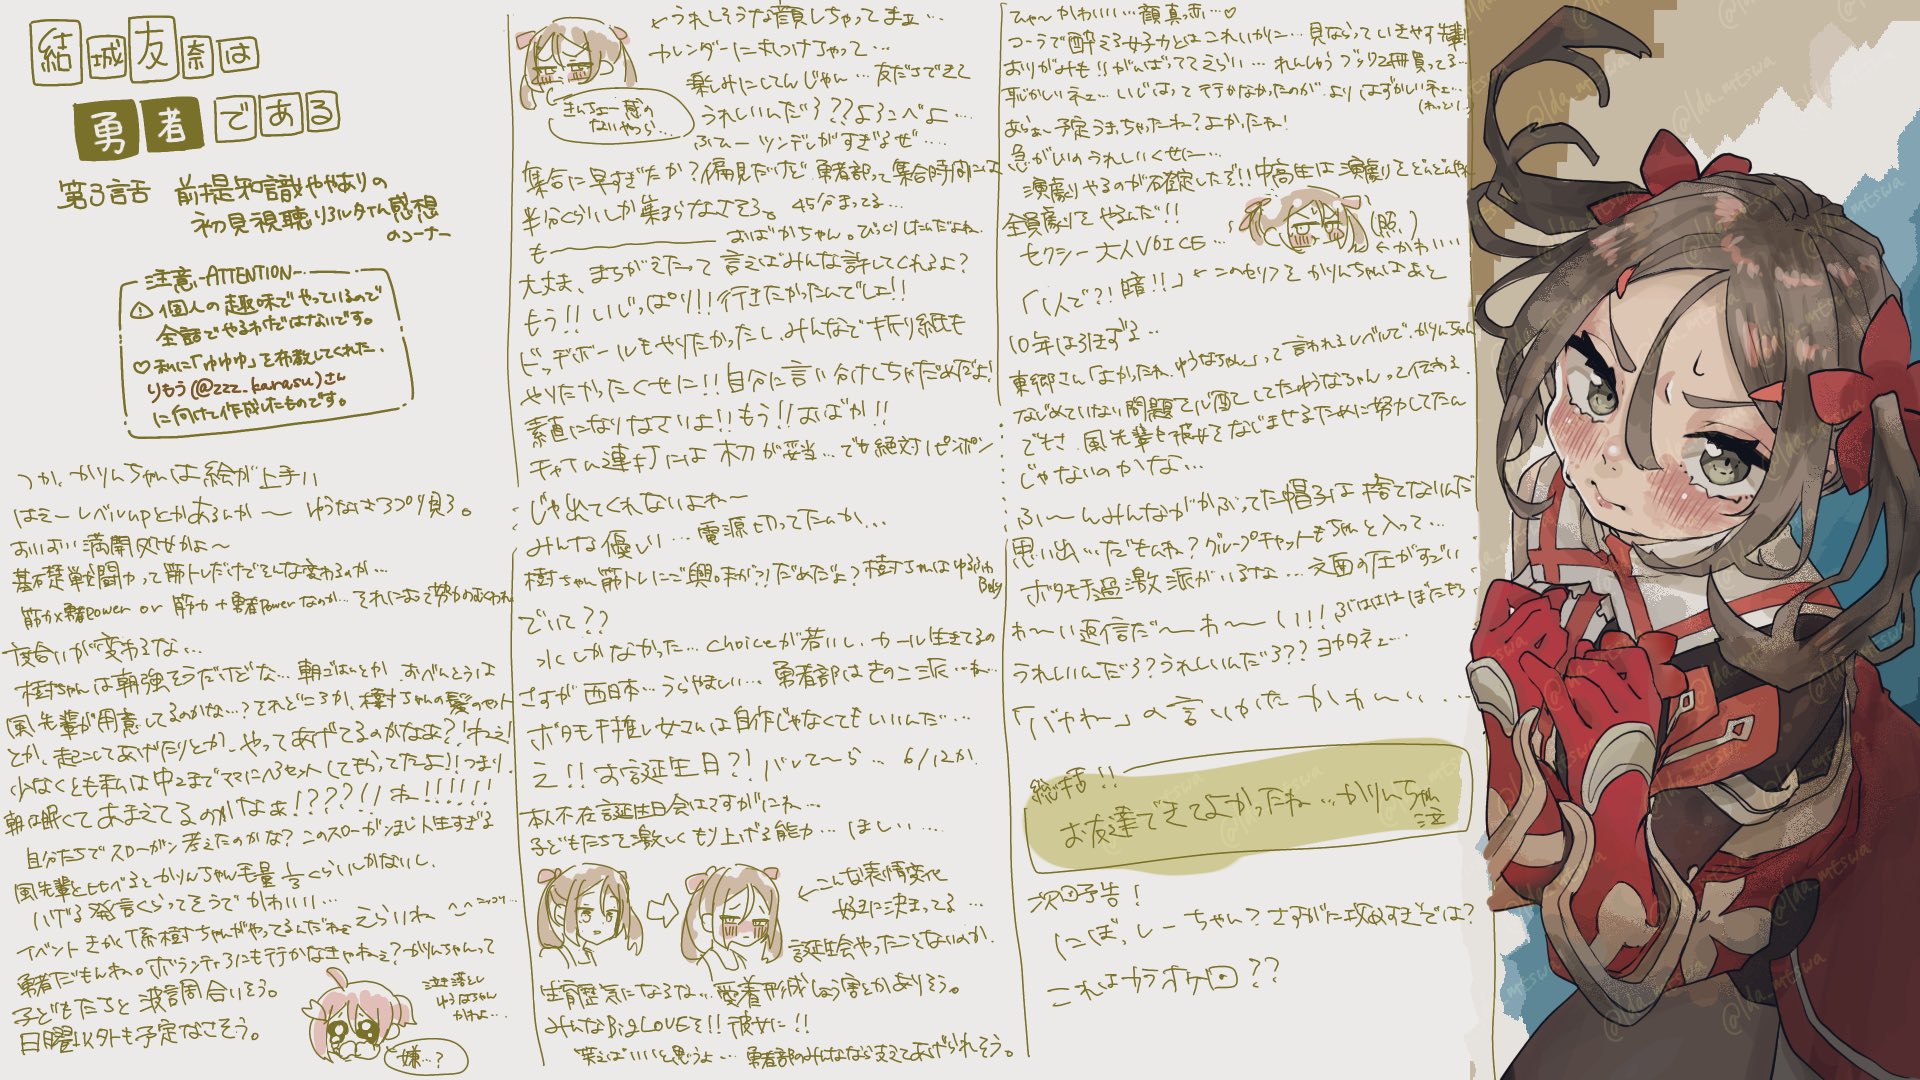 結城友奈は
勇者である
第3話 前提知識ややありの
初見視聴リアルタイム感想
のコーナー
注意-ATTENTION-
① 個人の趣味でやっているので
全話でやるわけではないです。
♡私に「ゆゆゆ」を布教してくれた、
りもう(@zzz_karasu)さん
に向けて作成したものです。
つか、かりんちゃんは絵が上手い
はえーレベルupとかあるんか〜 ゆうなさろっぷり見ろ。
おいおい満開処せかよ〜
基礎戦闘力って筋トレだけでそんな変わるのか…
筋力×勇者power or 筋力+勇者powerなのか…それによって努力のむくわれ
度合いが変わるな…
樹ちゃんは朝強そうだけどな…朝ごはんとか、おべんとうは
風先輩が用意してるのかな…?それどころか、樹ちゃんの髪のセット
とか、起こしてあげたりとか、やってあげてるのかなぁ?!ねえ!
少なくとも私は中2までママにヘアセットしてもらってたよ!!つまり、
朝は眠くてあまえてるのかなぁ!???!!ねー!!!!!!
自分たちでスローガン考えたのかな?このスローガンまじ人生すぎる
風先輩と比べるとかりんちゃん毛量⅓くらいしかないし、
ハゲる発言くらってそうでかわいい…
イベントきかく係樹ちゃんがやってるんだねぇえらいね ^^ニッコリ…
勇者だもんね。ボランティアにも行かなきゃねぇ?かりんちゃんって
子どもたちと波調合いそう。
日曜以外も予定なさそう。
泣き落とし
ゆうなちゃん
かわよ…
嫌…?
←うれしそうな顔しちゃってまェ…
カレンダーに丸つけちゃって…
楽しみにしてんじゃん…友だちできて
うれしいんだろ??よろこべよ…
ふえーツンデレがすぎるぜ….
きんちょー感の
ないやつら…
集合に早すぎたか?偏見だけど勇者部って集合時間には
半分くらいしか集まらなさそう。45分まってる…
も――― おばかちゃん。びっくりしたんだよね。
大丈夫、まちがえたって言えばみんな許してくれるよ?
もう!!いじっぱり!!行きたかったんでしょ!!
ドッヂボールもやりたかったし、みんなで折り紙も
やりたかったくせに!!自分に言い分けしちゃだめだよ!
素直になりなさいよ!!もう!!おばか!!
チャイム連打には木刀が妥当…でも絶対ピンポン
じゃ出てくれないよね〜
みんな優しい…電源切ってたんか…
樹ちゃん筋トレにご興味が?!だめだよ?樹ちゃんはゆるふわBody
でいて??
水しかなかった…choiceが若いし、カール生きてるの
さすが西日本…うらやましい…勇者部はきのこ派…ね…
ボタモチ推し女さんは自作じゃなくてもいいんだ…
え!!お誕生日?!バレて〜ら… 6/12か.
本人不在誕生日会はさすがにね…
子どもたちを激しくもり上げる能力…ほしい….
←こんな表情変化
好きに決まってる…
誕生会やったことないのか.
生育歴気になるな…愛着形成しょう害とかありそう。
みんなBigLOVEを!!彼女に!!
笑えばいいと思うよ… 勇者部のみんななら支えてあげられそう。
ひゃ〜かわいい…顔真っ赤…♡
コーラで酔える女子力とはこれいかに…見ならっていきやす先輩!
おりがみもりがんばっててえらい…れんしゅうブック2冊買ってる…
恥かしいネェ…いじはって行かなかったのが、よりはずかしいネェ…
(ねっとり.)
あらぁ〜予定うまっちゃったね?よかったね!
急がいのうれしいくせに…
演劇やるのが確定したぞ!!中高生は演劇をどんどんやれ
全員劇をやるんだ!!
セクシー大人VOICE…
(照、)
←かわいい
「1人で?!暗!!」←このセリフをかりんちゃんはあと
10年は引きずる..
東郷さん「よかったね、ゆうなちゃん」って言われるレベルで、かりんちゃん
なじめていない問題で心配してたゆうなちゃんって何ねぇ.
でもさ、風先輩も彼女をなじませるために努力してたん
じゃないのかな…
ふ〜んみんながかぶってた帽子は捨てないんだ
思い出…だもんね?グループチャットもちゃんと入って…
ボタモチ過激派がいるな…文面の圧がすごい
わ〜い返信だ〜わ〜い!!!ぶははははぼたもち
うれしいんだろ?うれしいんだろ??ヨカタネェ…
「バカね」の言いかたかわいい…
総括!!
お友達できてよかったね…かりんちゃん
泣
次回予告!
にぼっしーちゃん?さすがに攻めすぎでは?
これはカラオケ回??
@lda_mtswa